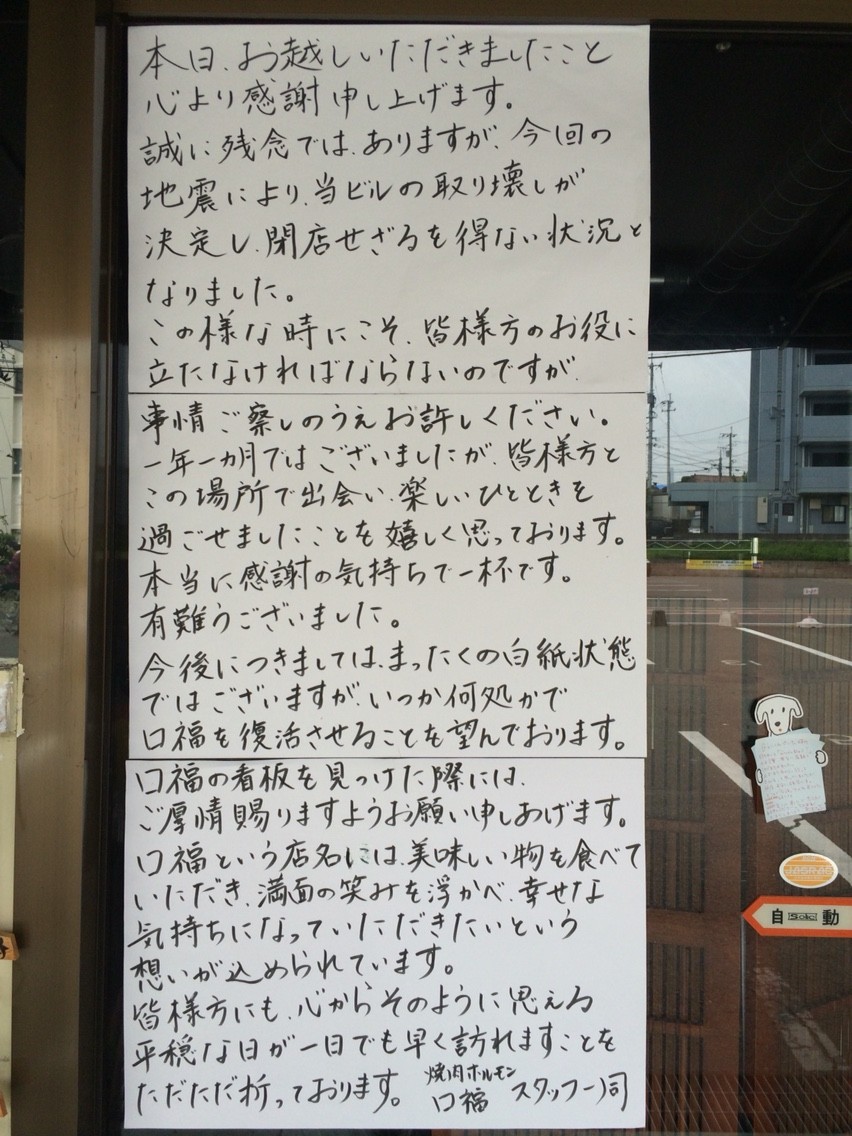 本日、お越しいただきましたこと
心より感謝申し上げます。
誠に残念では、ありますが、今回の
地震により、当ビルの取り壊しが
決定し、閉店せざるを得ない状況と
なりました。
この様な時にこそ、皆様方のお役に
立たなければならないのですが、
事情ご察しのうえお許しください。
一年一カ月ではございましたが、皆様方と
この場所で出会い、楽しいひとときを
過ごせましたことを嬉しく思っております。
本当に感謝の気持ちで一杯です。
有難うございました。
今後につきましては、まったくの白紙状態
ではございますが、いつか何処かで
口福を復活させることを望んでおります。
口福の看板を見つけた際には、
ご厚情賜りますようお願い申しあげます。
口福という店名には、美味しい物を食べて
いただき、満面の笑みを浮かべ、幸せな
気持ちになっていただきたいという
想いが込められています。
皆様方にも、心からそのように思える
平穏な日が一日でも早く訪れますことを
ただただ祈っております。
焼肉ホルモン
口福 スタッフ一同
JASRAC
自 動